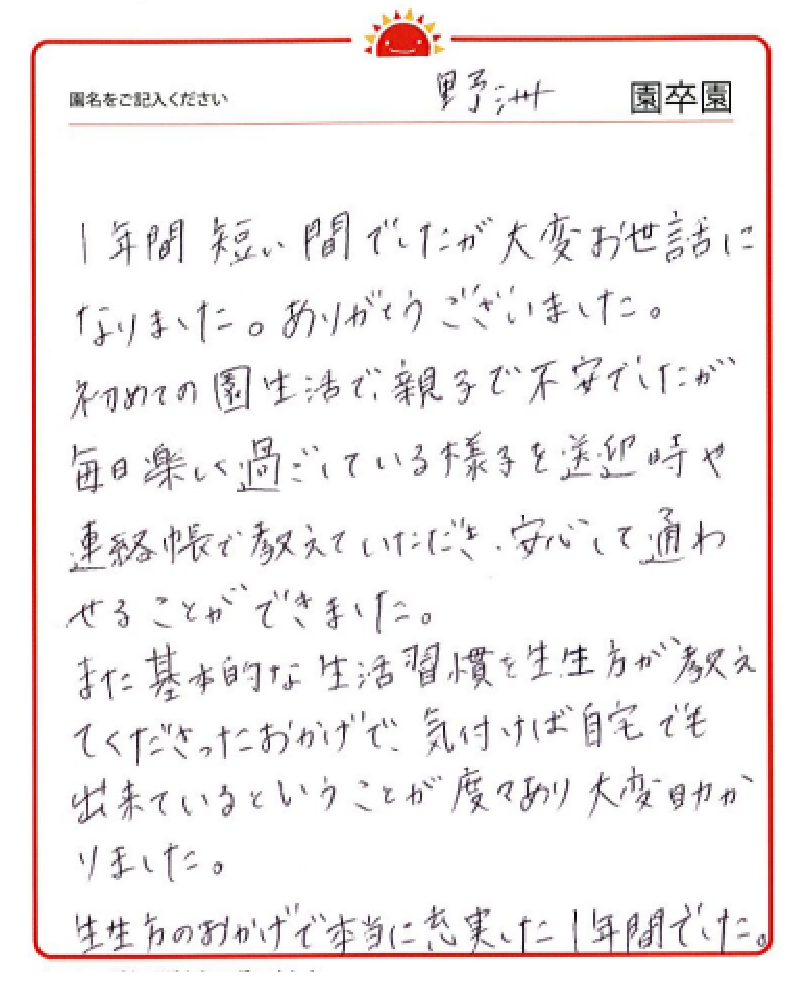 園名をご記入ください 野洲 園卒園
1年間 短い間でしたが大変お世話に
なりました。ありがとうございました。
初めての園生活で、親子で不安でしたが
毎日楽しく過ごしている様子を送迎時や
連絡帳で教えていただき、安心して通わ
せることができました。
また基本的な生活習慣を先生方が教え
てくださったおかげで、気付けば自宅でも
出来ているということが度々あり大変助か
りました。
先生方のおかげで本当に充実した1年間でした。